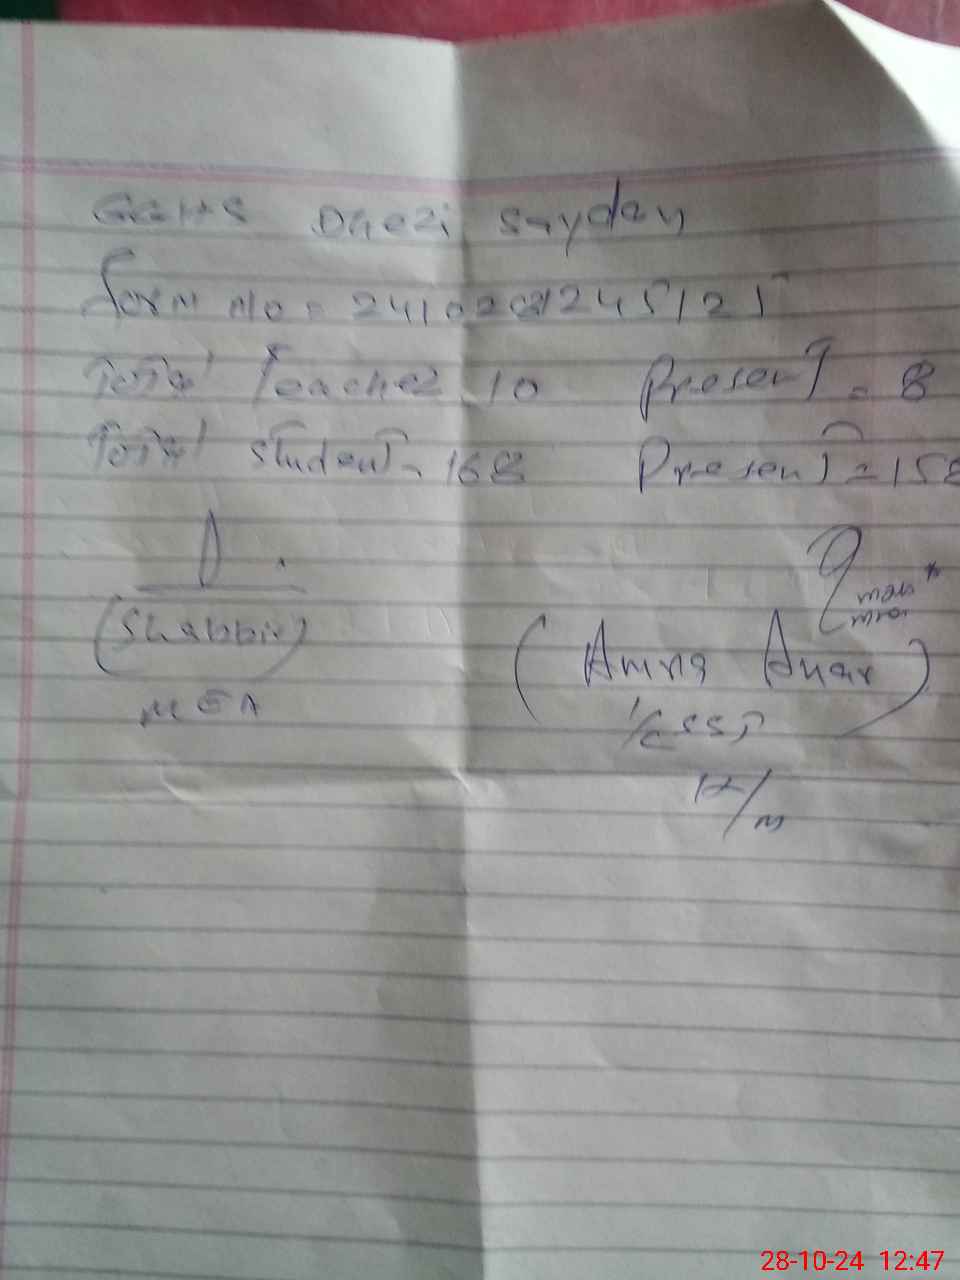 GGHS Dhezi Saydan
form No = 241028124S125
Total Teacher 10 Present = 8
Total Student - 168 Present = 158
(Shabbir) (Amna Anar)
MEA I/C SST
H/M
28-10-24 12:47